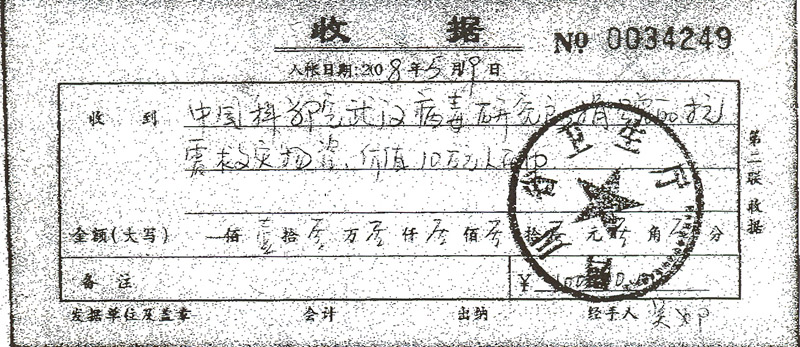 收 据
№ 0034249
入帐日期:2008年5月19日
收 到 中国科学院武汉病毒研究所捐赠的抗
震救灾物资、价值10万元人民币
金额(大写) 佰 壹 拾 零 万 零 仟 零 佰 零 拾 零 元 零 角 零 分
备 注 ¥
发据单位及盖章 会计 出纳 经手人
第二联 收据
省卫生厅